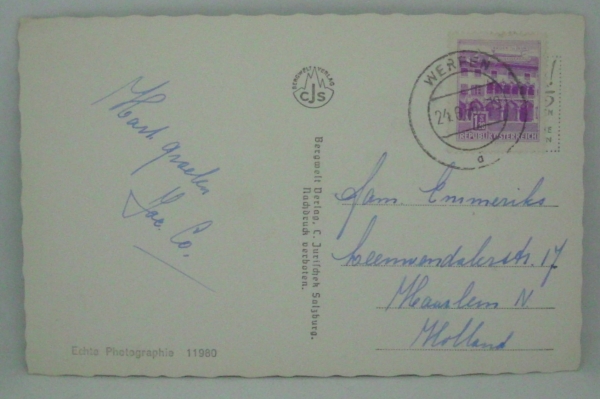 Hart. groeten
Jac. Co.
BERGWELT VERLAG
CJS
Bergwelt Verlag, C. Jurischek Salzburg.
Nachdruck verboten.
WERFEN
24.
a
REPUBLIK ÖSTERREICH
Fam. Emmeriks
17
Haarlem N.
Holland
Echte Photographie 11980